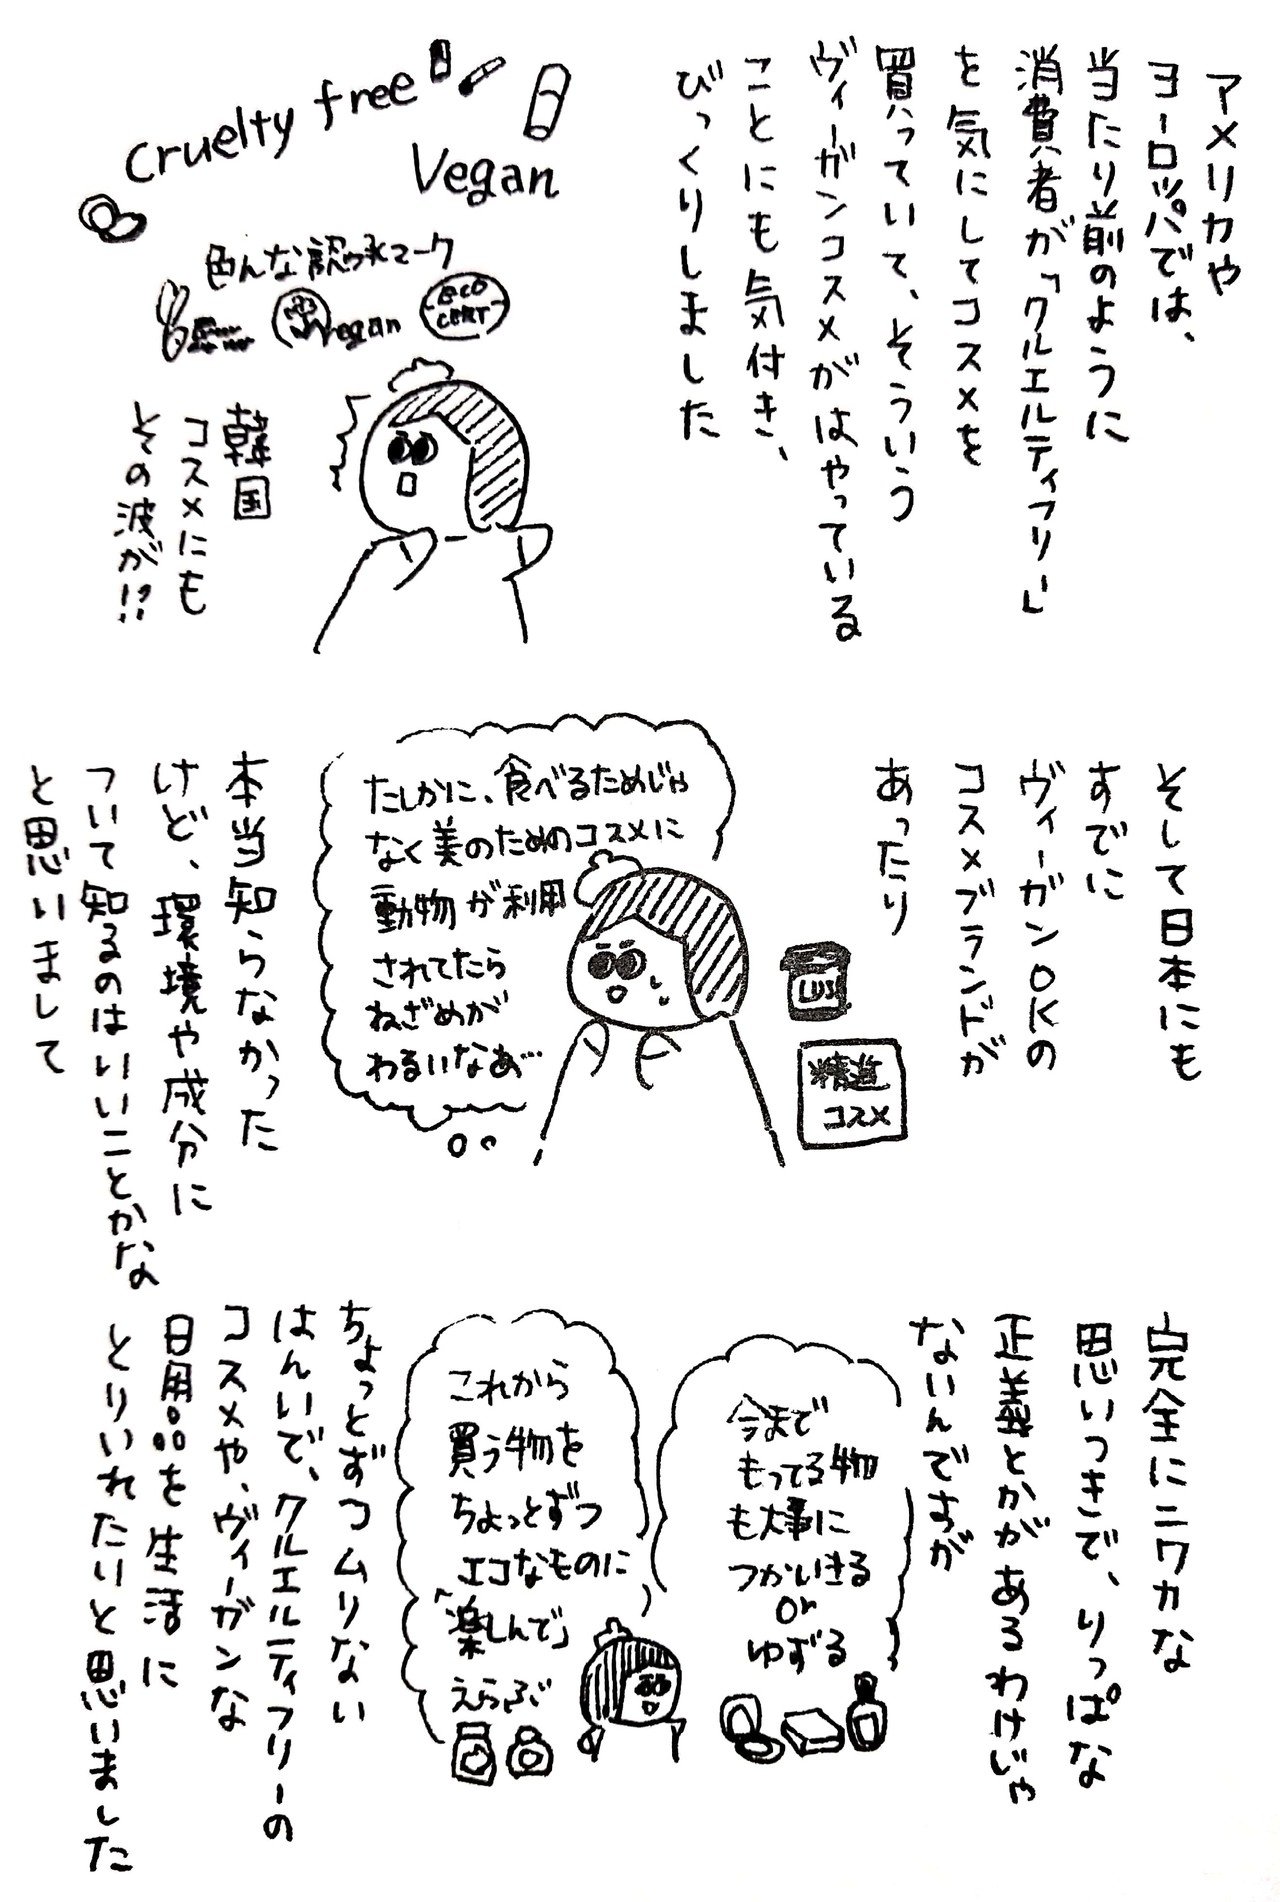 アメリカや
ヨーロッパでは、
当たり前のように
消費者が「クルエルティフリー」
を気にしてコスメを
買っていて、そういう
ヴィーガンコスメがはやっている
ことにも気付き、
びっくりしました
cruelty free
Vegan
色んな認承マーク
Vegan
ECO
CERT
韓国
コスメにも
その波が!?
そして日本にも
すでに
ヴィーガンOKの
コスメブランドが
あったり
LUS
精進
コスメ
たしかに、食べるためじゃ
なく美のためのコスメに
動物が利用
されてたら
ねざめが
わるいなあ…
本当知らなかった
けど、環境や成分に
ついて知るのはいいことかな
と思いまして
完全にニワカな
思いつきで、りっぱな
正義とかがあるわけじゃ
ないんですが
今まで
もってる物
も大事に
つかいきる
or
ゆずる
これから
買う物を
ちょっとずつ
エコなものに
「楽しんで」
えらぶ
ちょっとずつムリない
はんいで、クルエルティフリーの
コスメや、ヴィーガンな
日用品を生活に
とりいれたりと思いました